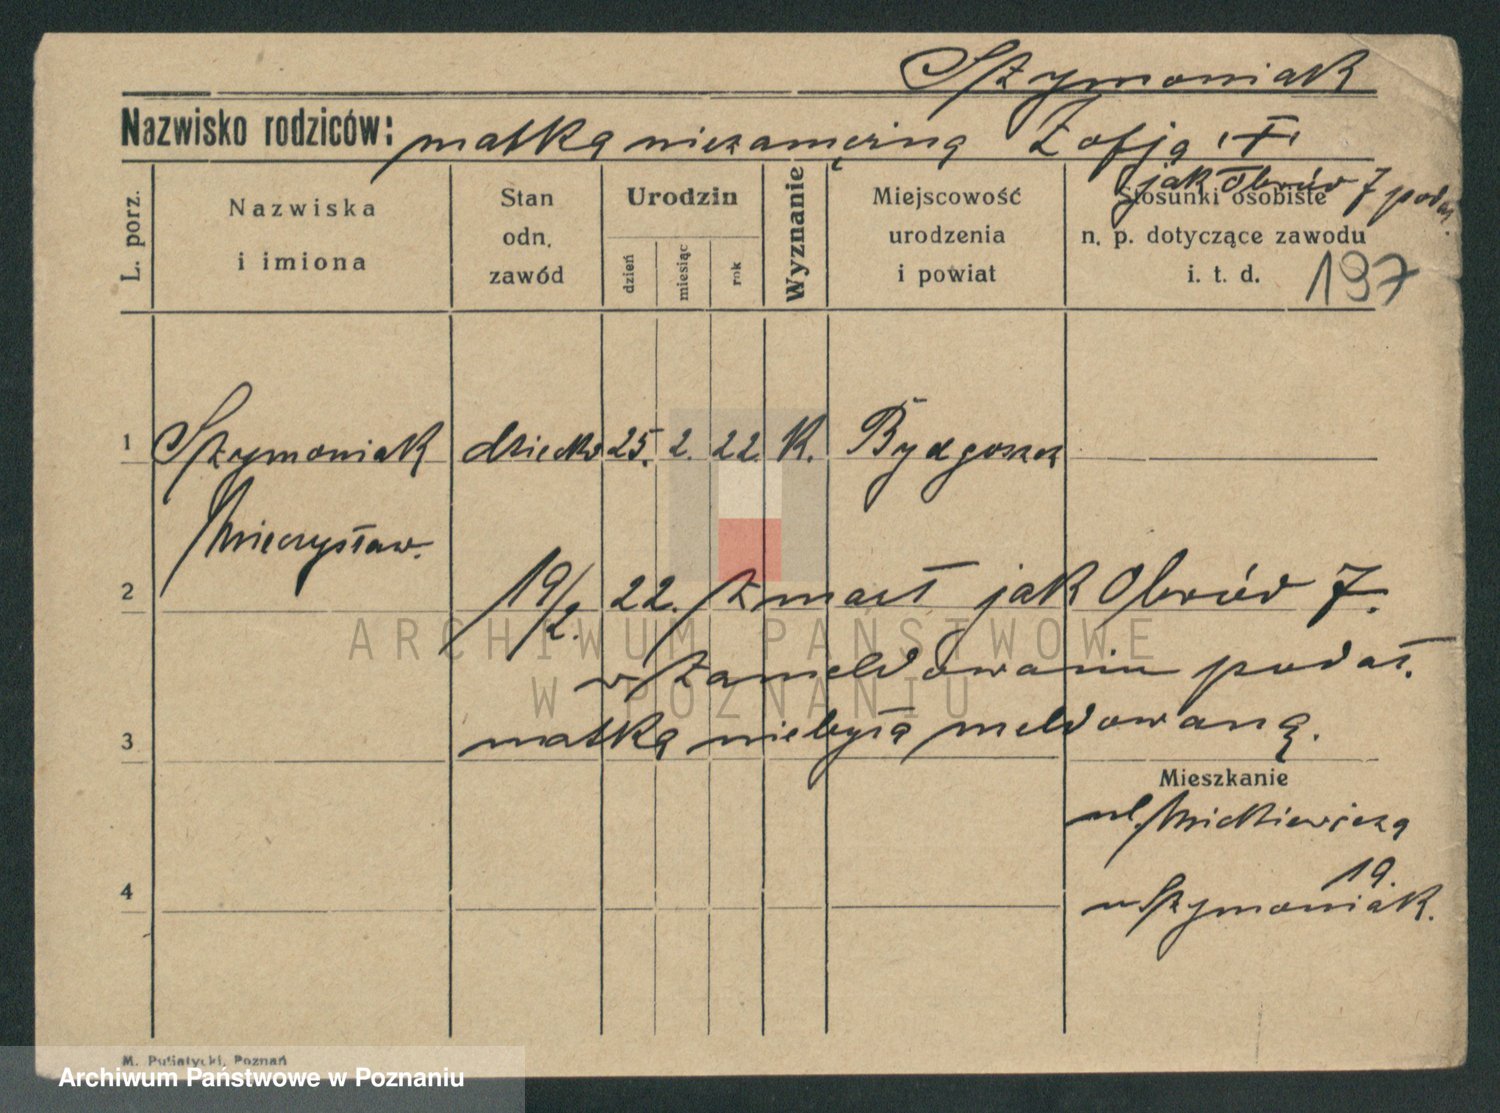 Szymoniak
Nazwisko rodziców: matka niezamężna Zofja "†"
jak Obwód 7 podał.
L. porz.
Nazwiska
i imiona
Stan
odn.
zawód
Urodzin
dzień
miesiąc
rok
Wyznanie
Miejscowość
urodzenia
i powiat
Stosunki osobiste
n. p. dotyczące zawodu
i. t. d.
197
1 Szymoniak dziecko 25. 2. 22. K. Bydgoszcz
Mieczysław.
2 19/2. 22. zmarł jak Obwód 7.
w zameldowaniu podał.
3 matka niebyła meldowaną.
Mieszkanie
ul. Mickiewicza
19.
4 u Szymoniak.
ARCHIWUM PAŃSTWOWE
W POZNANIU
M. Pušiatycki, Poznań
Archiwum Państwowe w Poznaniu